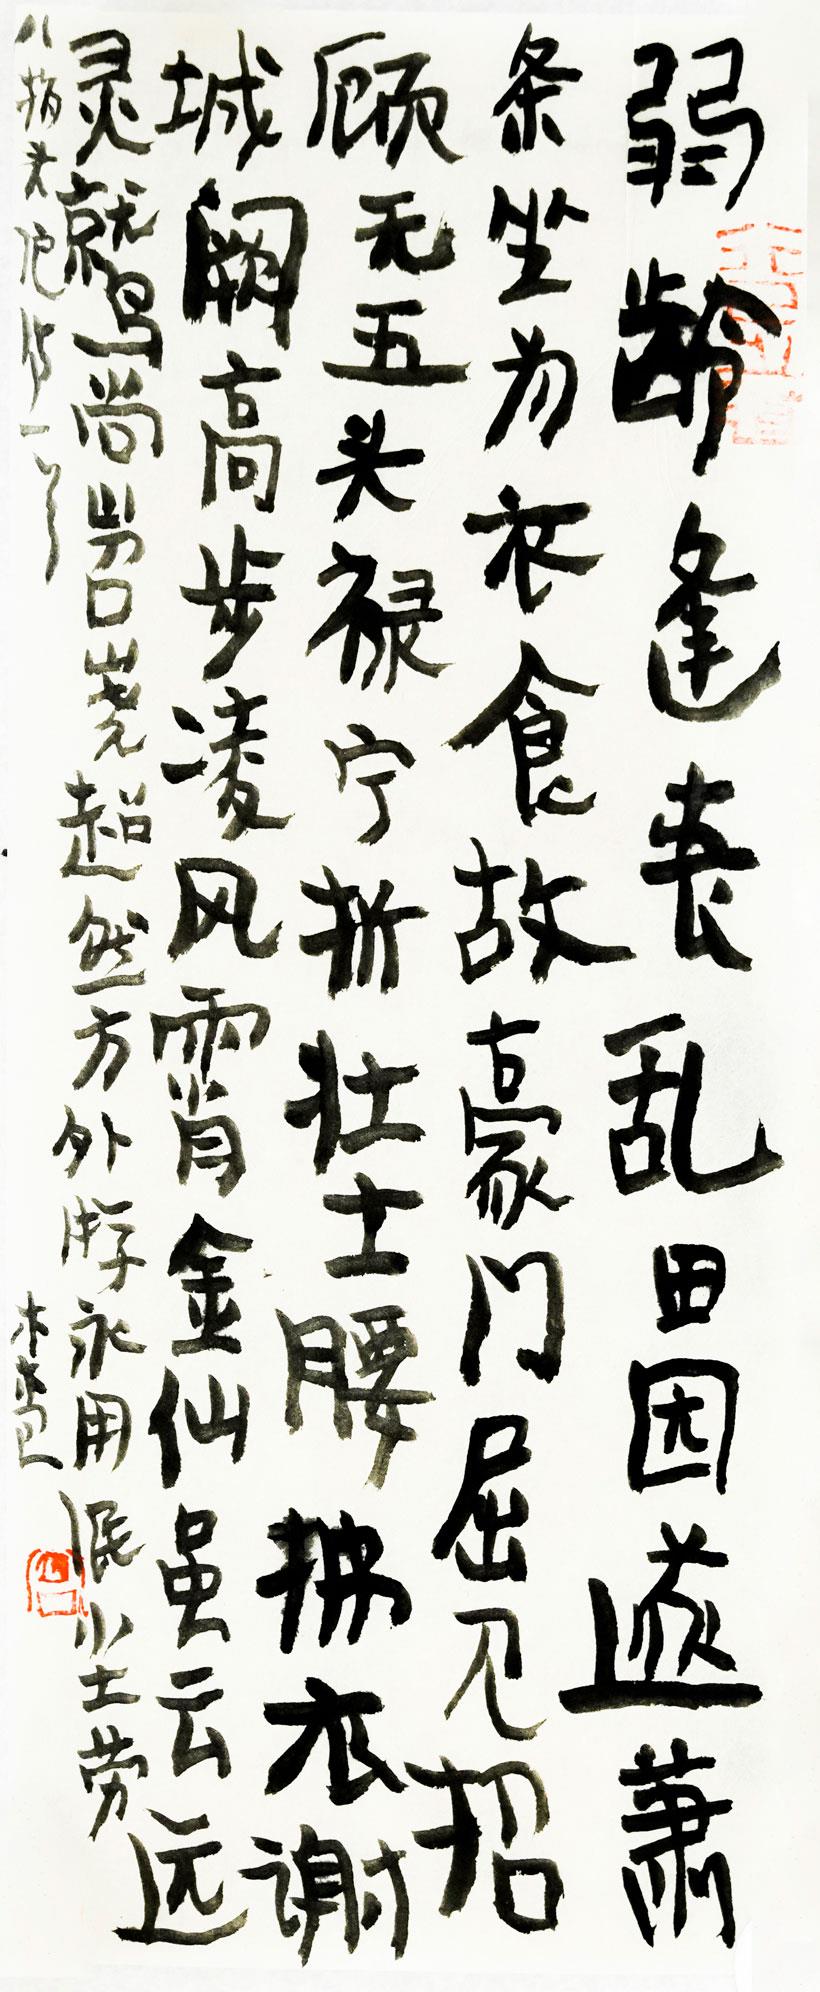 弱龄逢丧乱田园遂萧
条坐为衣食故豪门屈见招
顾无五头禄宁折壮士腰拂衣谢
城阙高步凌风霄金仙虽云远
灵鹫尚岧峣超然方外游永用泯小士劳
八指头陀诗一首